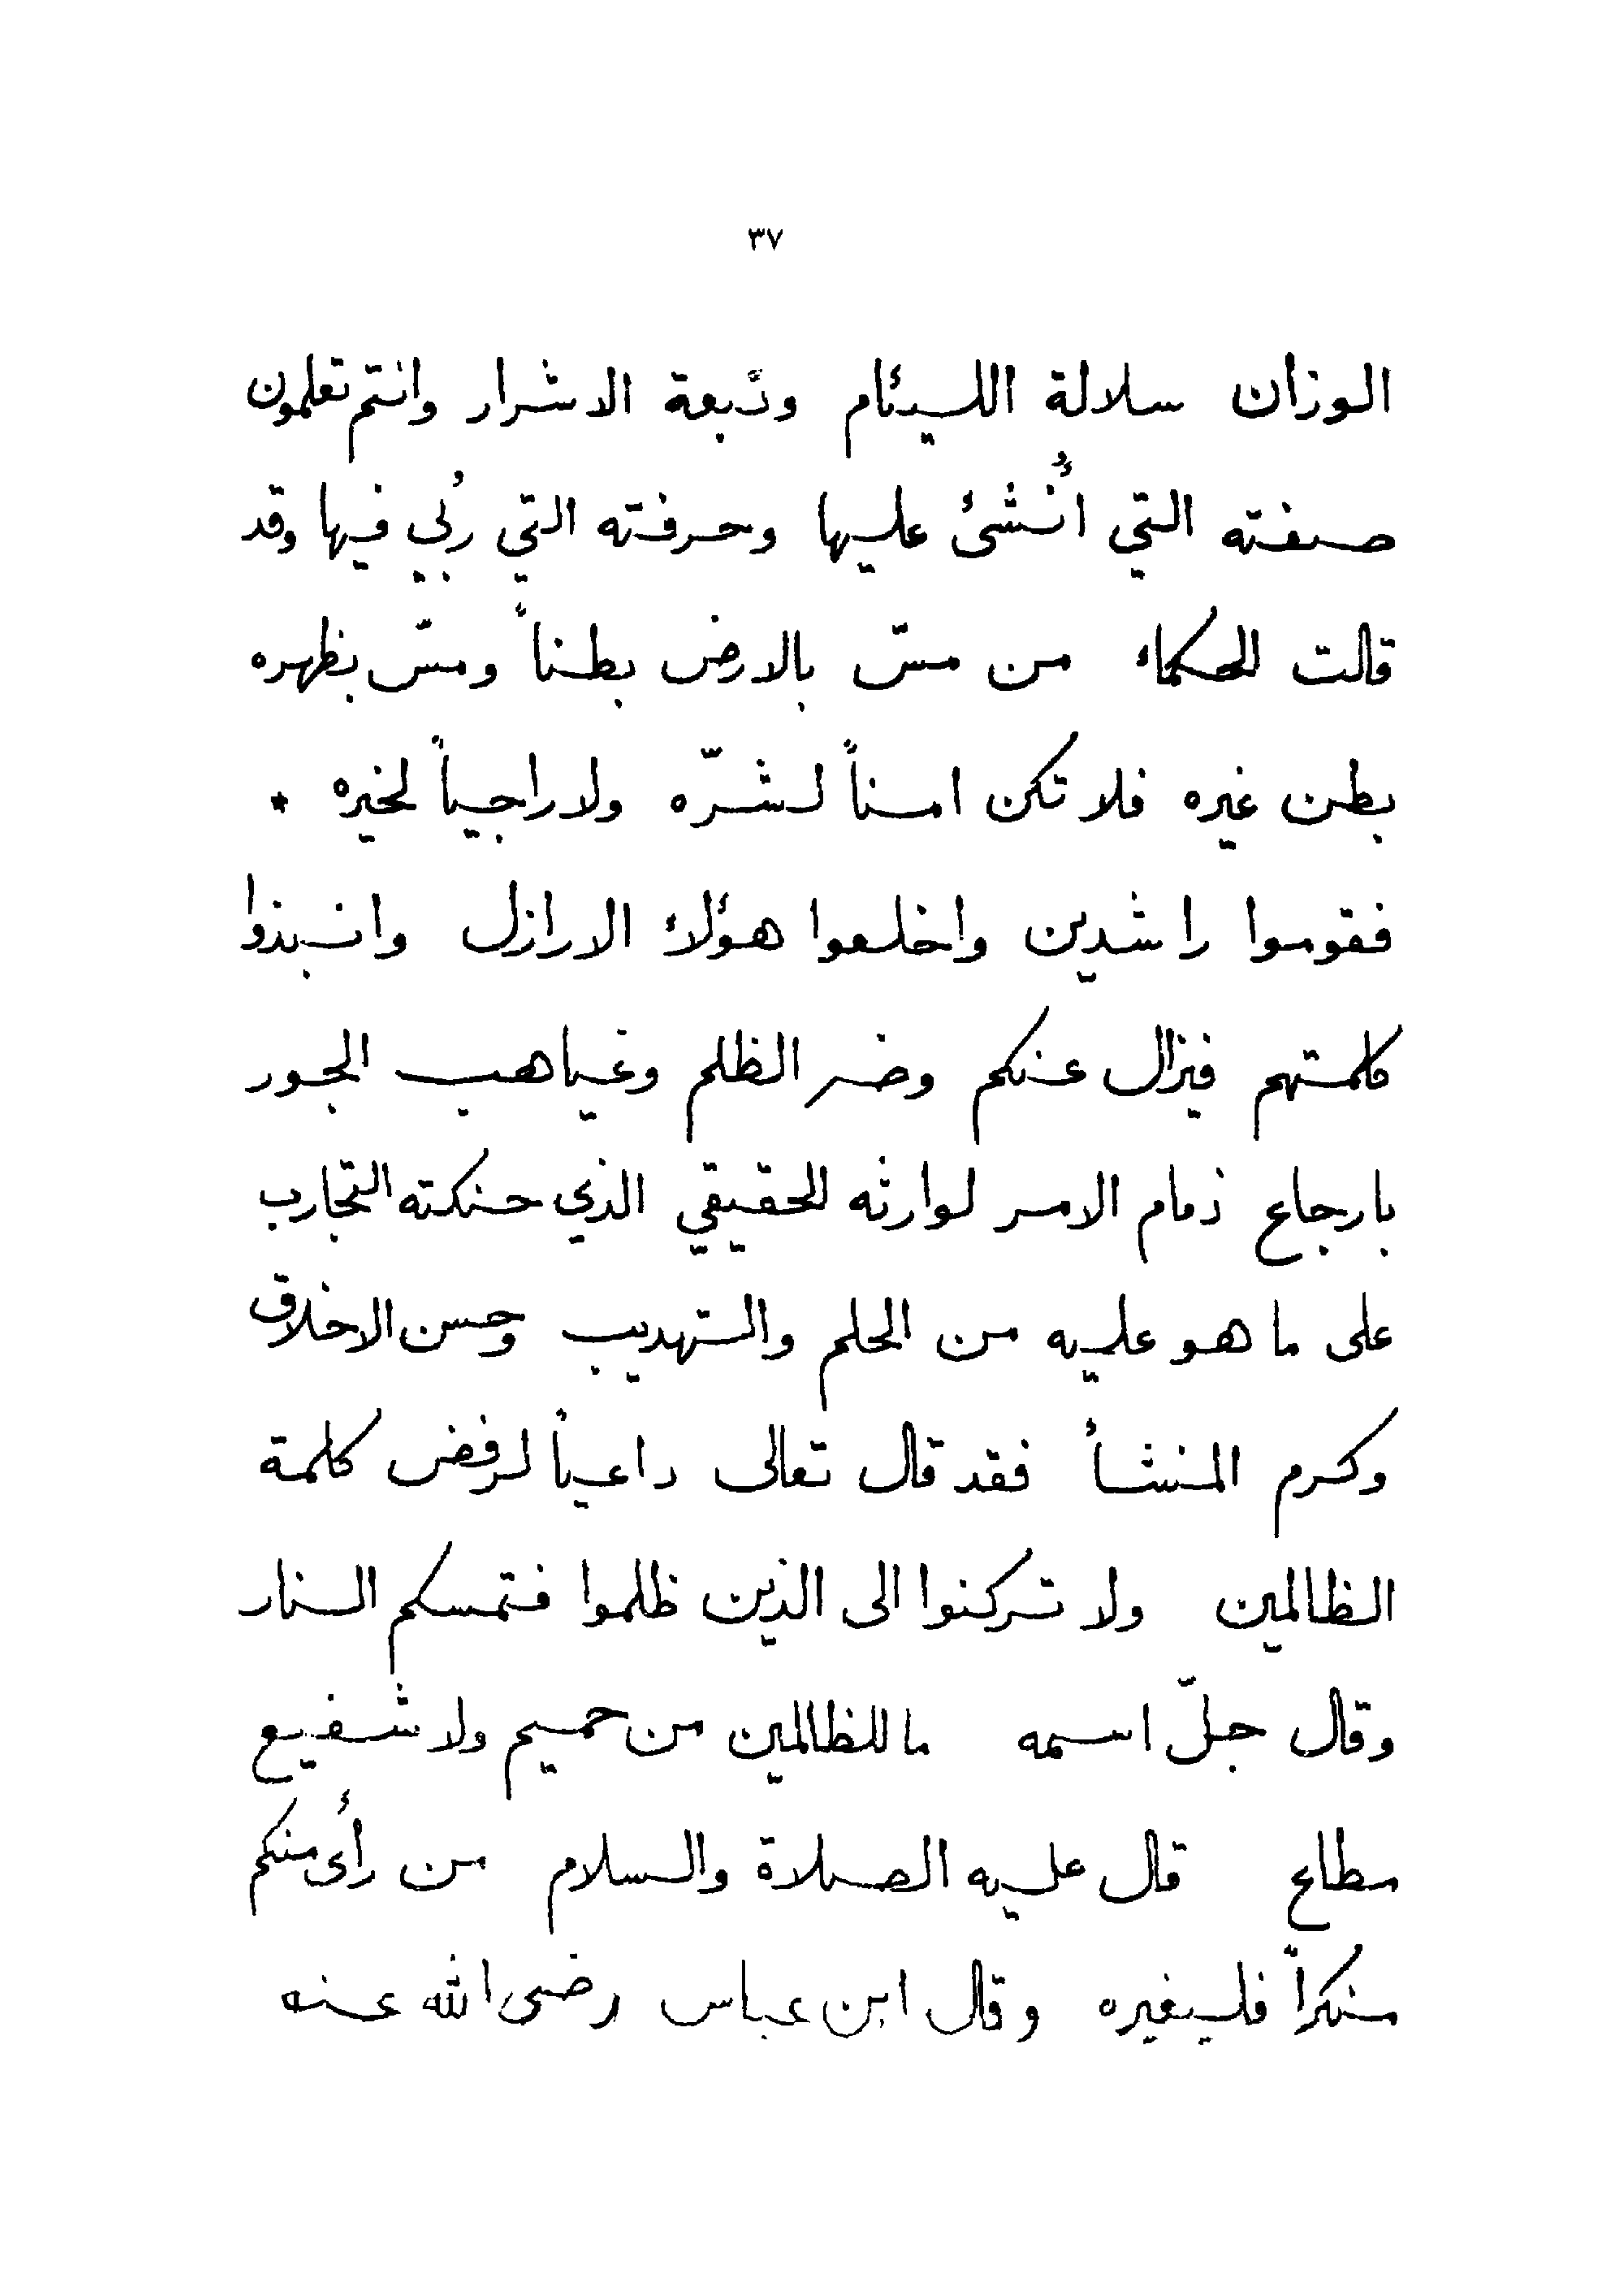 ٣٧
الوزان سلالة اللئيام ونبعة الاشرار وانتم تعلمون
صنعته التي اُنشئ عليها وحرفته التي رُبي فيها وقد
قالت الحكماء من مسّ بالارض بطناً ومسّ بظهره
بطن غيره فلا تكن امناً لشرّه ولا راجياً لخيره *
فقوموا راشدين واخلعوا هؤلاء الارازل وانبذوا
كلمتهم فيزال عنكم وضر الظلم وغياهب الجور
بارجاع زمام الامر لوارثه الحقيقي الذي حنكته التجارب
على ما هو عليه من الحلم والتهذيب وحسن الاخلاق
وكرم المنشأ فقد قال تعالى داعياً لرفض كلمة
الظالمين ولا تركنوا الى الذين ظلموا فتمسكم النار
وقال جلّ اسمه ما للظالمين من حميم ولا شفيع
مطاع قال عليه الصلاة والسلام من رأى منكم
منكراً فليغيره وقال ابن عباس رضى الله عنه